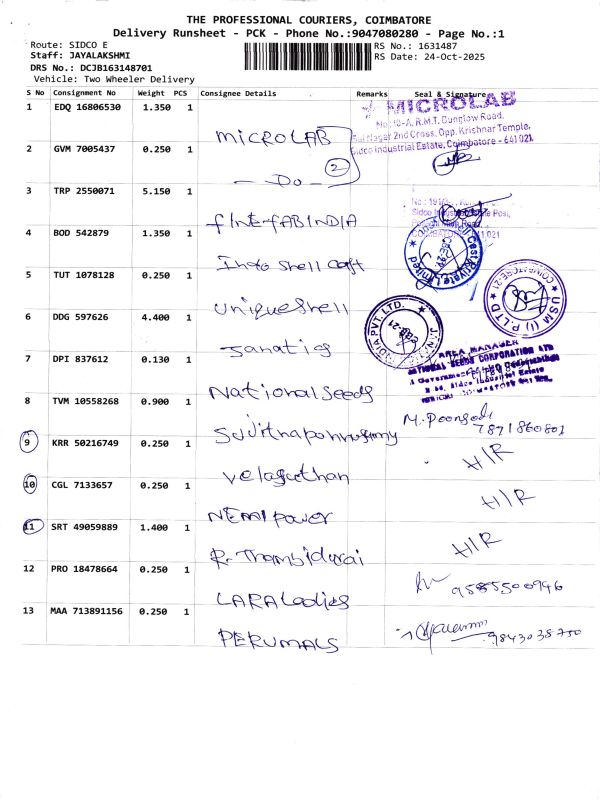 THE PROFESSIONAL COURIERS, COIMBATORE
Delivery Runsheet - PCK - Phone No.:9047080280 - Page No.:1
Route: SIDCO E
RS No.: 1631487
Staff: JAYALAKSHMI
RS Date: 24-Oct-2025
DRS No.: DCJB163148701
Vehicle: Two Wheeler Delivery
S No Consignment No Weight PCS Consignee Details Remarks Seal & Signature
1 EDQ 16806530 1.350 1 MICROLAB
MICROLAB
No: 10-A, R.M.T. Bunglow Road,
Sai Nagar 2nd Cross, Opp. Krishnar Temple,
Sidco Industrial Estate, Coimbatore - 641 021.
2 GVM 7005437 0.250 1 -Do- 2
3 TRP 2550071 5.150 1 fINE-FAB INDIA
4 BOD 542879 1.350 1 Indo Shell
5 TUT 1078128 0.250 1 Unique Shell
6 DDG 597626 4.400 1 Janatics
USM (I) P.LTD
COIMBATORE-21
INDIA PVT. LTD.
CBE-21
7 DPI 837612 0.130 1 National Seeds
AREA MANAGER
NATIONAL SEEDS CORPORATION LTD
8 TVM 10558268 0.900 1
7871860801
9 KRR 50216749 0.250 1 H/R
10 CGL 7133657 0.250 1 NEMI Power H/R
11 SRT 49059889 1.400 1 R. Thambidurai H/R
12 PRO 18478664 0.250 1 LARA Ladies
9585500946
13 MAA 713891156 0.250 1 PERUMALS
9843038750